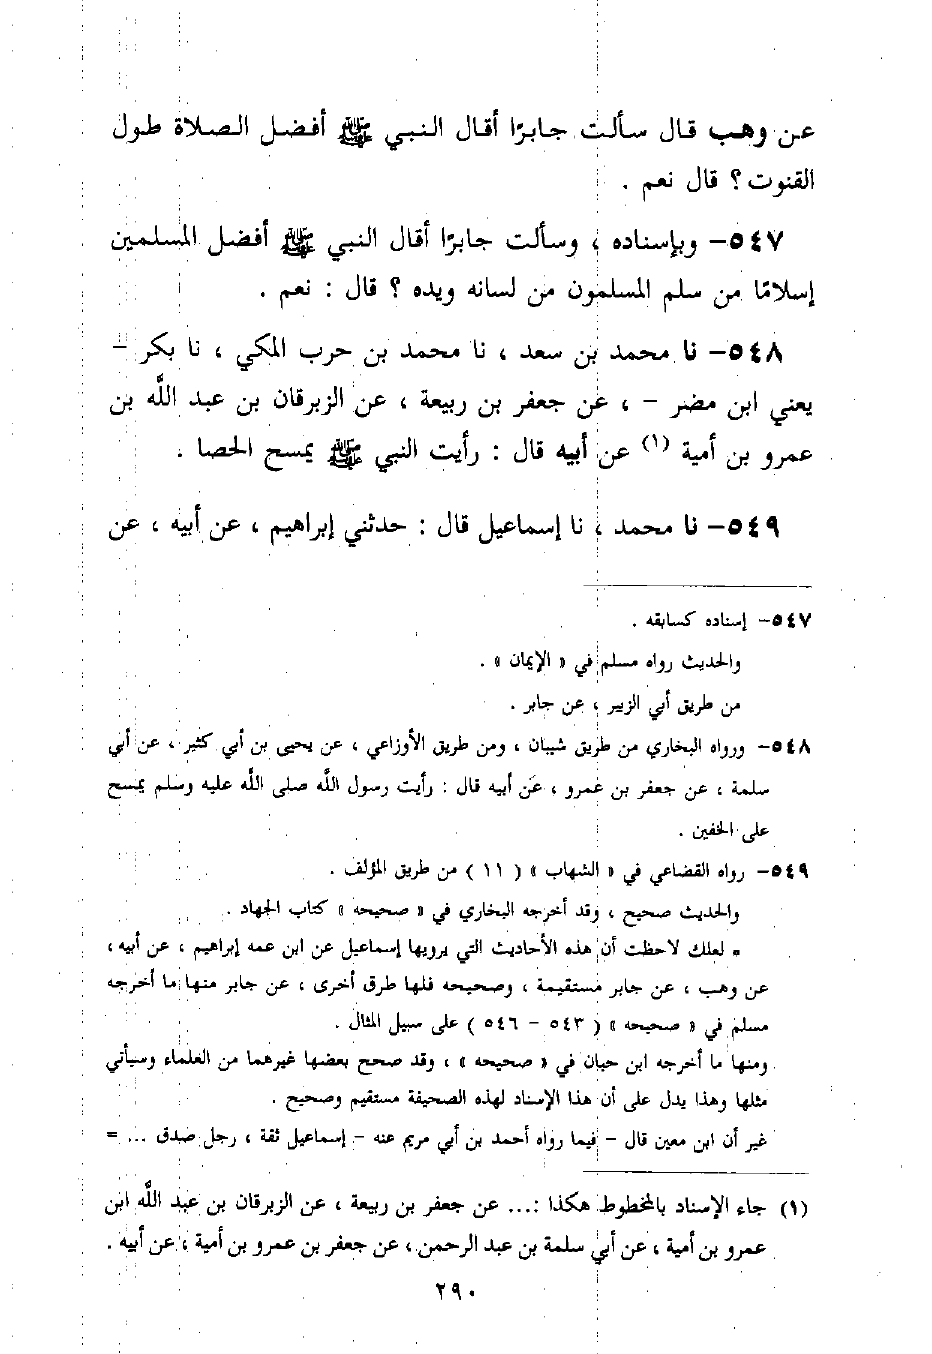 عن وهب قال سألت جابرًا أقال النبي ﷺ أفضل الصلاة طول
القنوت ؟ قال نعم .
٥٤٧- وبإسناده ، وسألت جابرًا أقال النبي ﷺ أفضل المسلمين
إسلامًا من سلم المسلمون من لسانه ويده ؟ قال : نعم .
٥٤٨- نا محمد بن سعد ، نا محمد بن حرب المكي ، نا بكر -
يعني ابن مضر - ، عن جعفر بن ربيعة ، عن الزبرقان بن عبد الله بن
عمرو بن أمية (١) عن أبيه قال : رأيت النبي ﷺ يمسح الحصا .
٥٤٩- نا محمد ، نا إسماعيل قال : حدثني إبراهيم ، عن أبيه ، عن
٥٤٧- إسناده كسابقه .
والحديث رواه مسلم في « الإيمان » .
من طريق أبي الزبير ، عن جابر .
٥٤٨- ورواه البخاري من طريق شيبان ، ومن طريق الأوزاعي ، عن يحيى بن أبي كثير ، عن أبي
سلمة ، عن جعفر بن عمرو ، عن أبيه قال : رأيت رسول الله صلى الله عليه وسلم يمسح
على الخفين .
٥٤٩- رواه القضاعي في « الشهاب » ( ١١ ) من طريق المؤلف .
والحديث صحيح ، وقد أخرجه البخاري في « صحيحه » كتاب الجهاد .
* لعلك لاحظت أن هذه الأحاديث التي يرويها إسماعيل عن ابن عمه إبراهيم ، عن أبيه ،
عن وهب ، عن جابر مستقيمة ، وصحيحه فلها طرق أخرى ، عن جابر منها ما أخرجه
مسلم في « صحيحه » ( ٥٤٣ - ٥٤٦ ) على سبيل المثال .
ومنها ما أخرجه ابن حبان في « صحيحه » ، وقد صحح بعضها غيرهما من العلماء وسيأتي
مثلها وهذا يدل على أن هذا الإسناد لهذه الصحيفة مستقيم وصحيح .
غير أن ابن معين قال - فيما رواه أحمد بن أبي مريم عنه - إسماعيل ثقة ، رجل صدق ... =
(١) جاء الإسناد بالمخطوط هكذا :... عن جعفر بن ربيعة ، عن الزبرقان بن عبد الله ابن
عمرو بن أمية ، عن أبي سلمة بن عبد الرحمن ، عن جعفر بن عمرو بن أمية ، عن أبيه .
٢٩٠